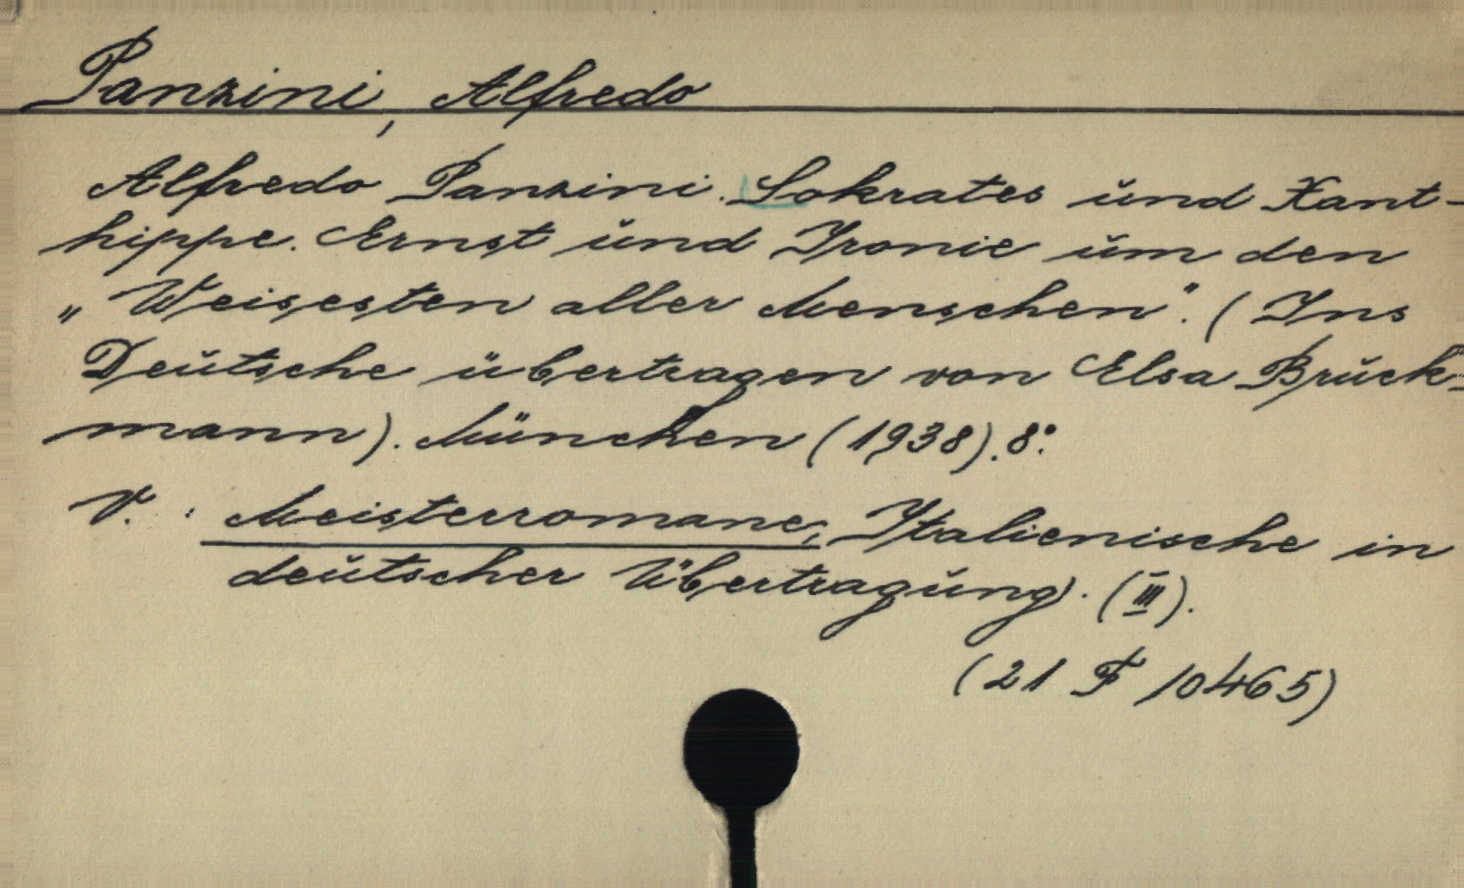 Panzini, Alfredo
Alfredo Panzini. Sokrates und Xant-
hippe. Ernst und Ironie um den
„Weisesten aller Menschen". (Ins
Deutsche übertragen von Elsa Bruck-
mann). München (1938). 8°.
V. : Meisterromane, Italienische in
deutscher Übertragung). (III).
(21 F 10465)